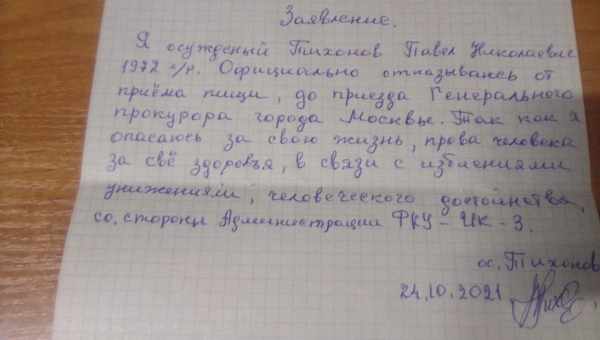 Заявление.
Я осужденый Тихонов Павел Николаевич
1972 г/р. Официально отказываюсь от
приёма пищи, до приезда Генерального
прокурора города Москвы. Так как я
опасаюсь за свою жизнь, права человека
за своё здоровья, в связи с избиениями
унижениями, человеческого достоинства,
со, стороны Администрации ФКУ-ИК-3.
ос. Тихонов
24.10.2021